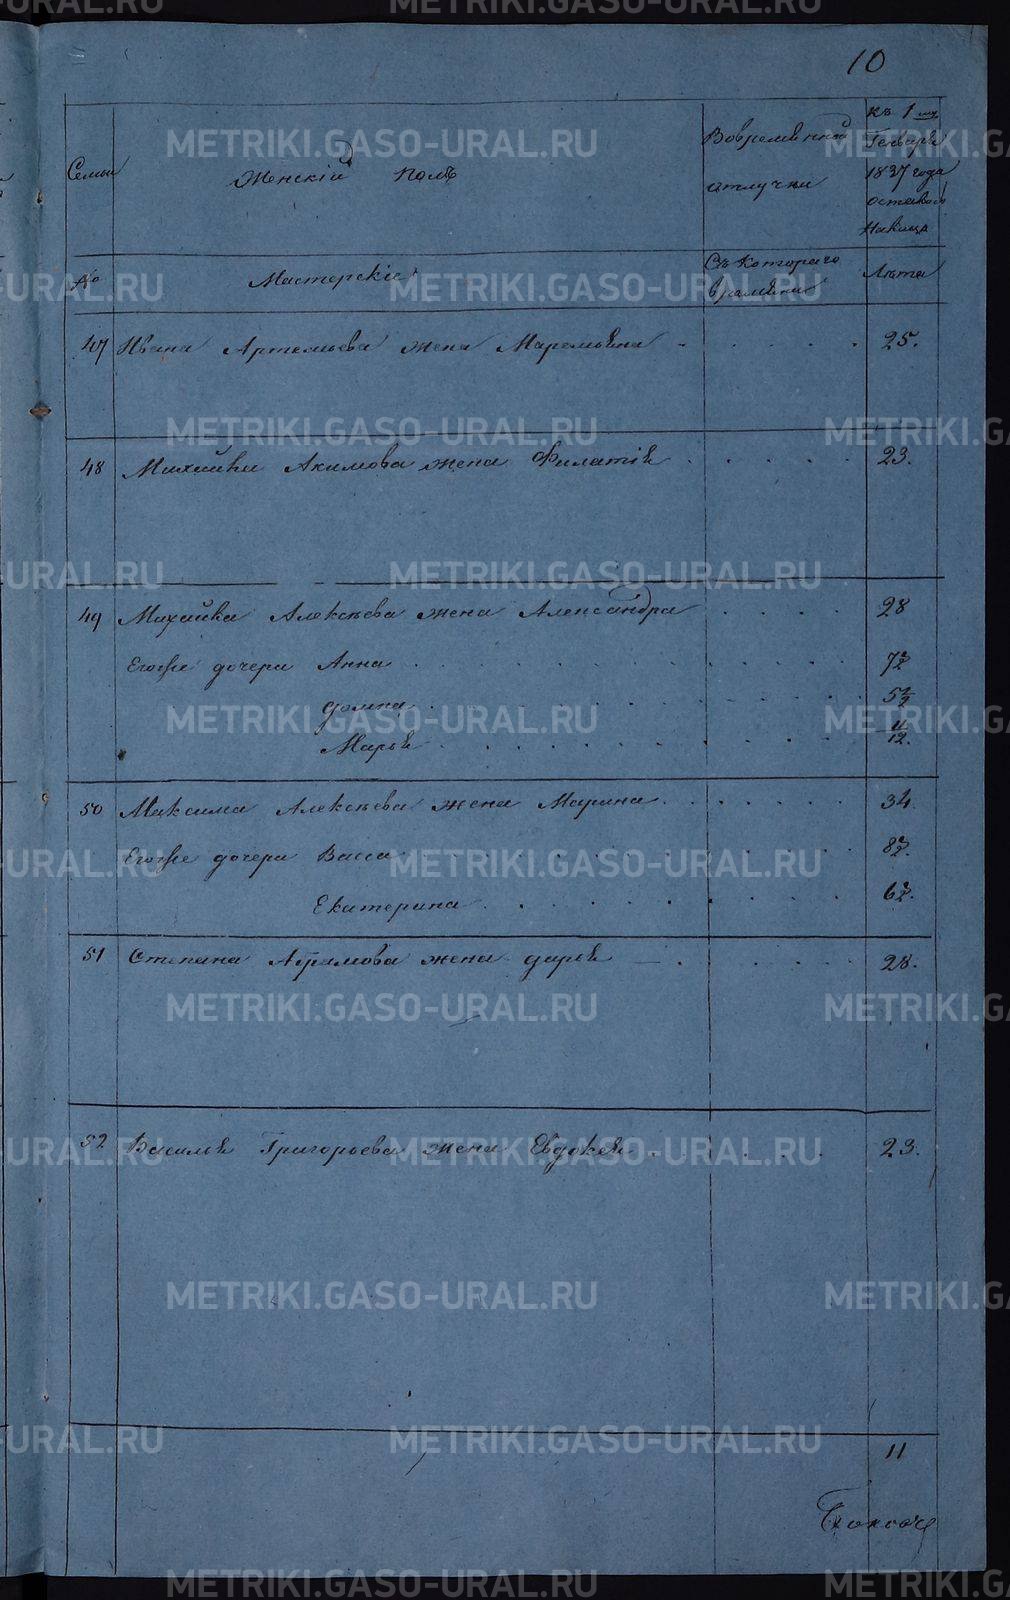 10
Семьи
Женскій полъ
Вовременной отлучки
къ 1му Генваря 1837 года оставалось налицо
№
Мастерскіе
Съ котораго времяни
Лѣта
47 Ивана Артемьева жена Маремьяна 25.
48 Михайлы Акимова жена Филатія 23.
49 Михайла Алексѣева жена Александра 28
Егоже дочери Анна 7½
домна 5½
Марья 11/12.
50 Максима Алексѣева жена Марина 34
Егоже дочери Васса 8½.
Екатерина 6½.
51 Степана Абрамова жена дарья 28.
52 Василья Григорьева жена Евдокея 23.
11
METRIKI.GASO-URAL.RU